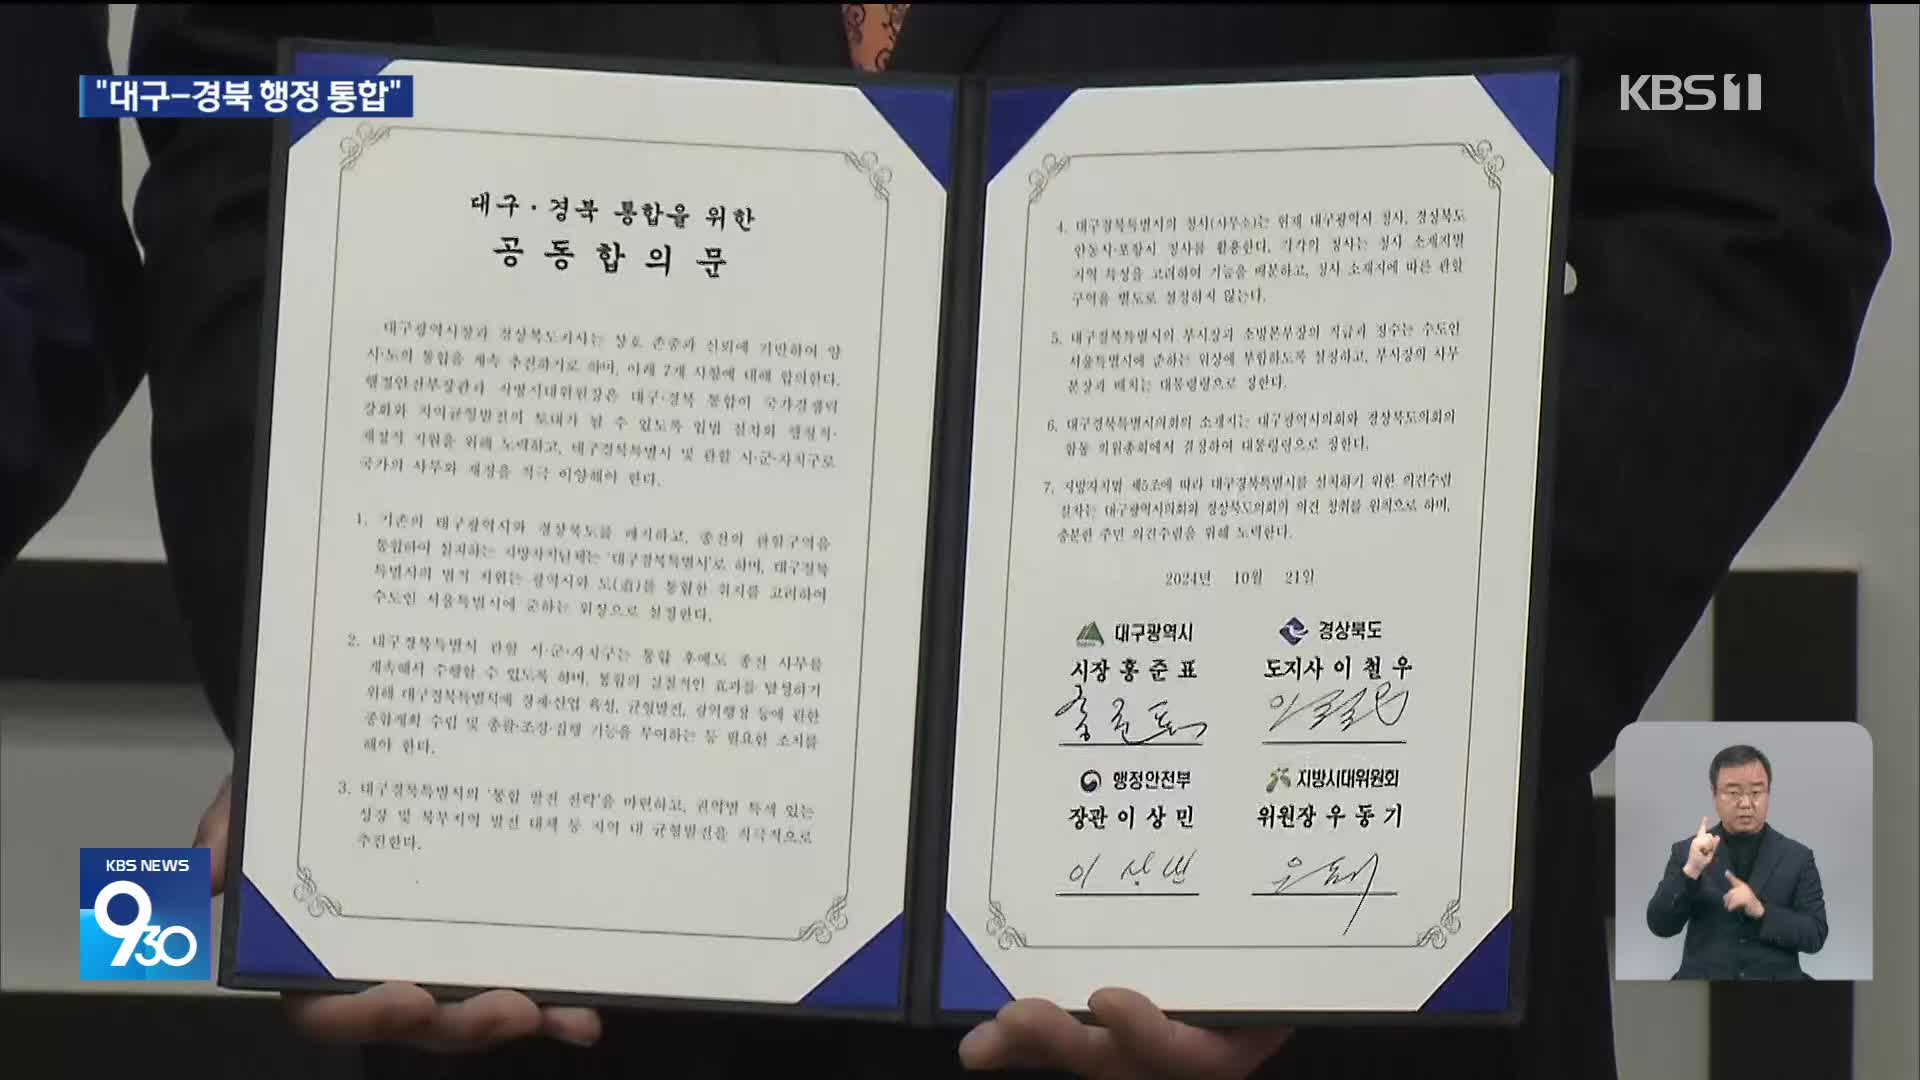 "대구-경북 행정 통합"
KBS 1
대구·경북 통합을 위한
공동합의문
대구광역시장과 경상북도지사는 상호 존중과 신뢰에 기반하여 양
시·도의 통합을 계속 추진하기로 하며, 아래 7개 사항에 대해 합의한다.
행정안전부장관과 지방시대위원장은 대구·경북 통합이 국가경쟁력
강화와 지역균형발전의 토대가 될 수 있도록 입법 절차와 행정적·
재정적 지원을 위해 노력하고, 대구경북특별시 및 관할 시·군·자치구로
국가의 사무와 재정을 적극 이양해야 한다.
1. 기존의 대구광역시와 경상북도를 폐지하고, 종전의 관할구역을
통합하여 설치하는 지방자치단체는 '대구경북특별시'로 하며, 대구경북
특별시의 법적 지위는 광역시와 도(道)를 통합한 취지를 고려하여
수도인 서울특별시에 준하는 위상으로 설정한다.
2. 대구경북특별시 관할 시·군·자치구는 통합 후에도 종전 사무를
계속해서 수행할 수 있도록 하며, 통합의 실질적인 효과를 달성하기
위해 대구경북특별시에 경제·산업 육성, 균형발전, 광역행정 등에 관한
종합계획 수립 및 총괄·조정·집행 기능을 부여하는 등 필요한 조치를
해야 한다.
3. 대구경북특별시의 '통합 발전 전략'을 마련하고, 권역별 특색 있는
성장 및 북부지역 발전 대책 등 지역 내 균형발전을 적극적으로
추진한다.
4. 대구경북특별시의 청사(사무소)는 현재 대구광역시 청사, 경상북도
안동시·포항시 청사를 활용한다. 각각의 청사는 청사 소재지별
지역 특성을 고려하여 기능을 배분하고, 청사 소재지에 따른 관할
구역을 별도로 설정하지 않는다.
5. 대구경북특별시의 부시장과 소방본부장의 직급과 정수는 수도인
서울특별시에 준하는 위상에 부합하도록 설정하고, 부시장의 사무
분장과 배치는 대통령령으로 정한다.
6. 대구경북특별시의회의 소재지는 대구광역시의회와 경상북도의회의
합동 의원총회에서 결정하여 대통령령으로 정한다.
7. 지방자치법 제5조에 따라 대구경북특별시를 설치하기 위한 의견수렴
절차는 대구광역시의회와 경상북도의회의 의견 청취를 원칙으로 하며,
충분한 주민 의견수렴을 위해 노력한다.
2024년 10월 21일
대구광역시 경상북도
시장 홍준표 도지사 이철우
홍준표 이철우
행정안전부 지방시대위원회
장관 이상민 위원장 우동기
이상민
KBS NEWS
930